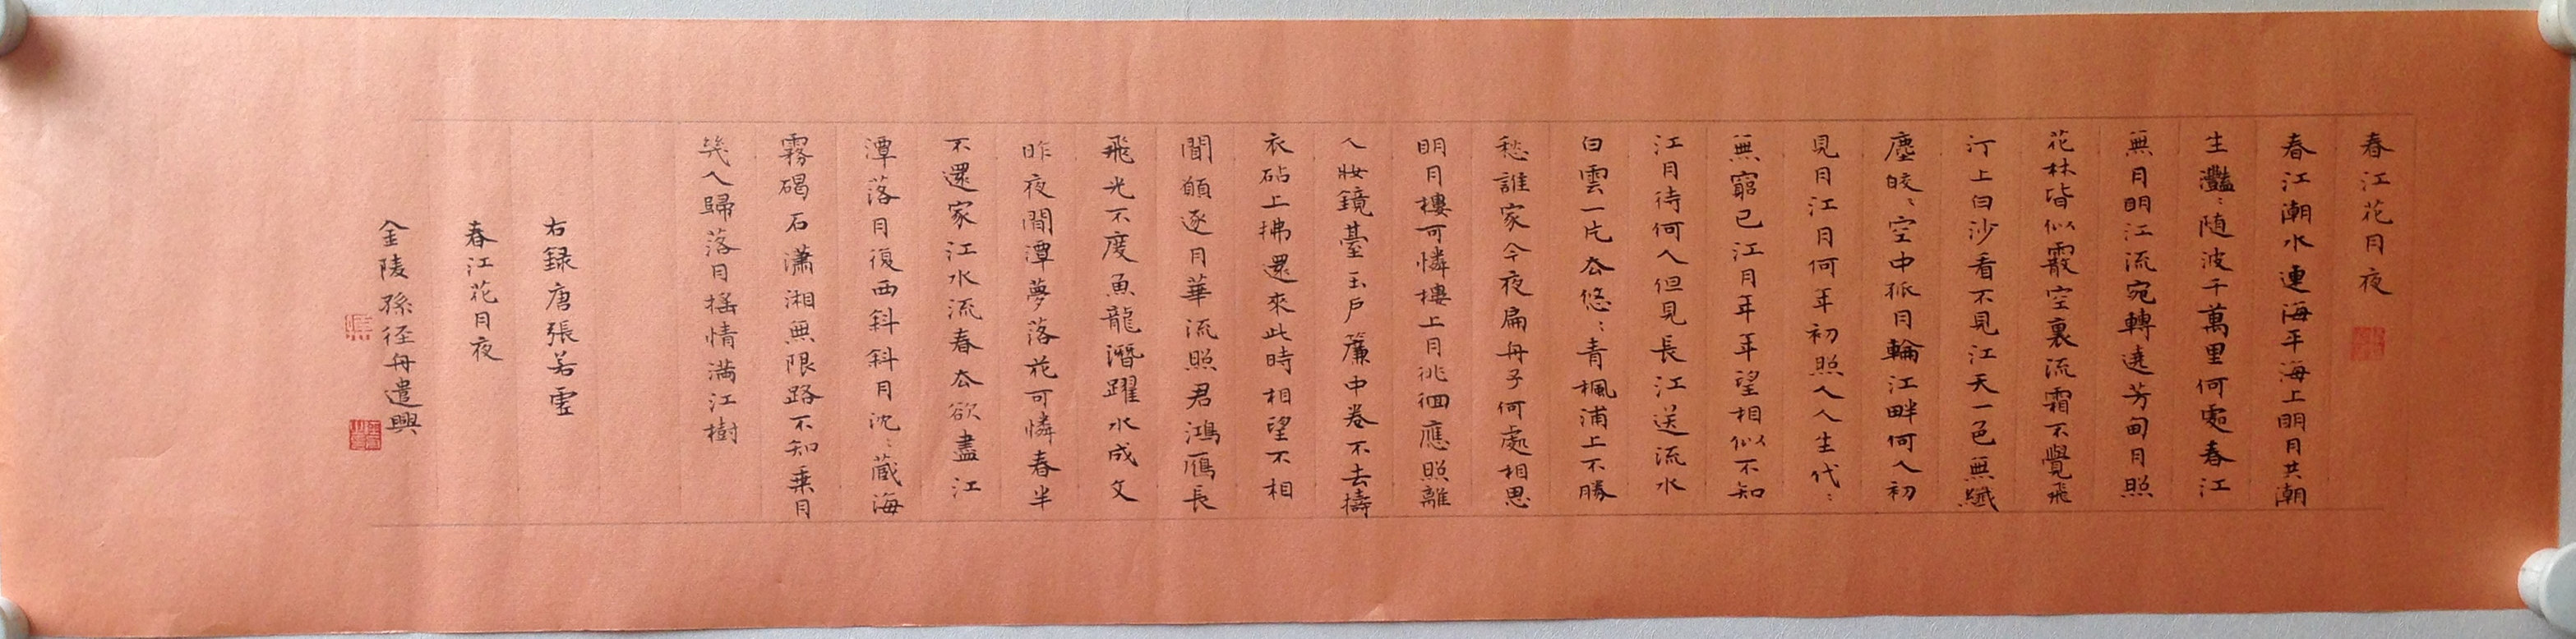 春江花月夜
春江潮水連海平海上明月共潮
生灩〻随波千萬里何處春江
無月明江流宛轉遶芳甸月照
花林皆似霰空裏流霜不覺飛
汀上白沙看不見江天一色無纖
塵皎〻空中孤月輪江畔何人初
見月江月何年初照人人生代〻
無窮已江月年年望相似不知
江月待何人但見長江送流水
白雲一片去悠〻青楓浦上不勝
愁誰家今夜扁舟子何處相思
明月樓可憐樓上月徘徊應照離
人妝鏡臺玉戶簾中卷不去擣
衣砧上拂還來此時相望不相
聞願逐月華流照君鴻雁長
飛光不度魚龍潛躍水成文
昨夜閒潭夢落花可憐春半
不還家江水流春去欲盡江
潭落月復西斜斜月沈〻藏海
霧碣石瀟湘無限路不知乗月
幾人歸落月搖情滿江樹
右録唐張若虛
春江花月夜
金陵孫径舟遣興